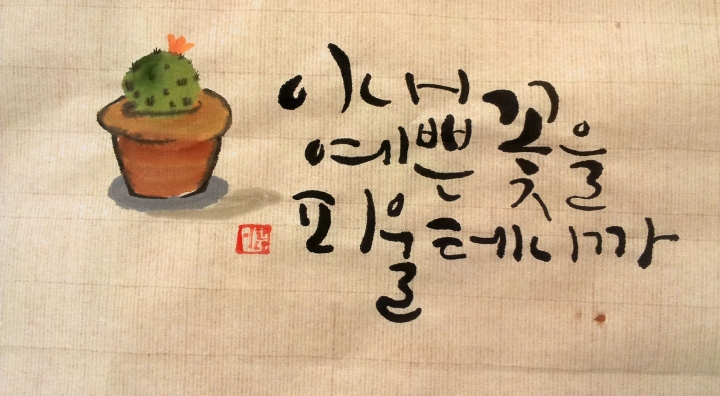 이내
예쁜 꽃을
피울테니까